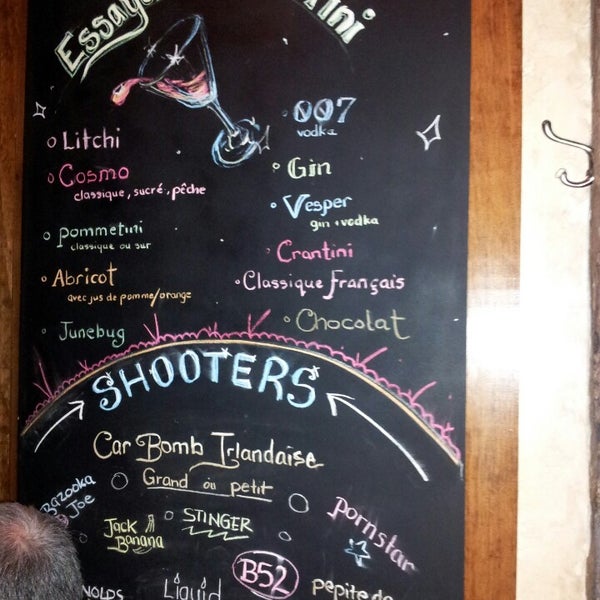 Litchi
Cosmo
classique, sucré, pêche
Pommetini
classique ou sur
Abricot
avec jus de pomme/orange
Junebug
007
vodka
Gin
Vesper
gin + vodka
Crantini
Classique Français
Chocolat
SHOOTERS
Car Bomb Irlandaise
Grand ou petit
Bazooka
Joe
Jack
Banana
STINGER
Pornstar
Liquid
B52
pepite de